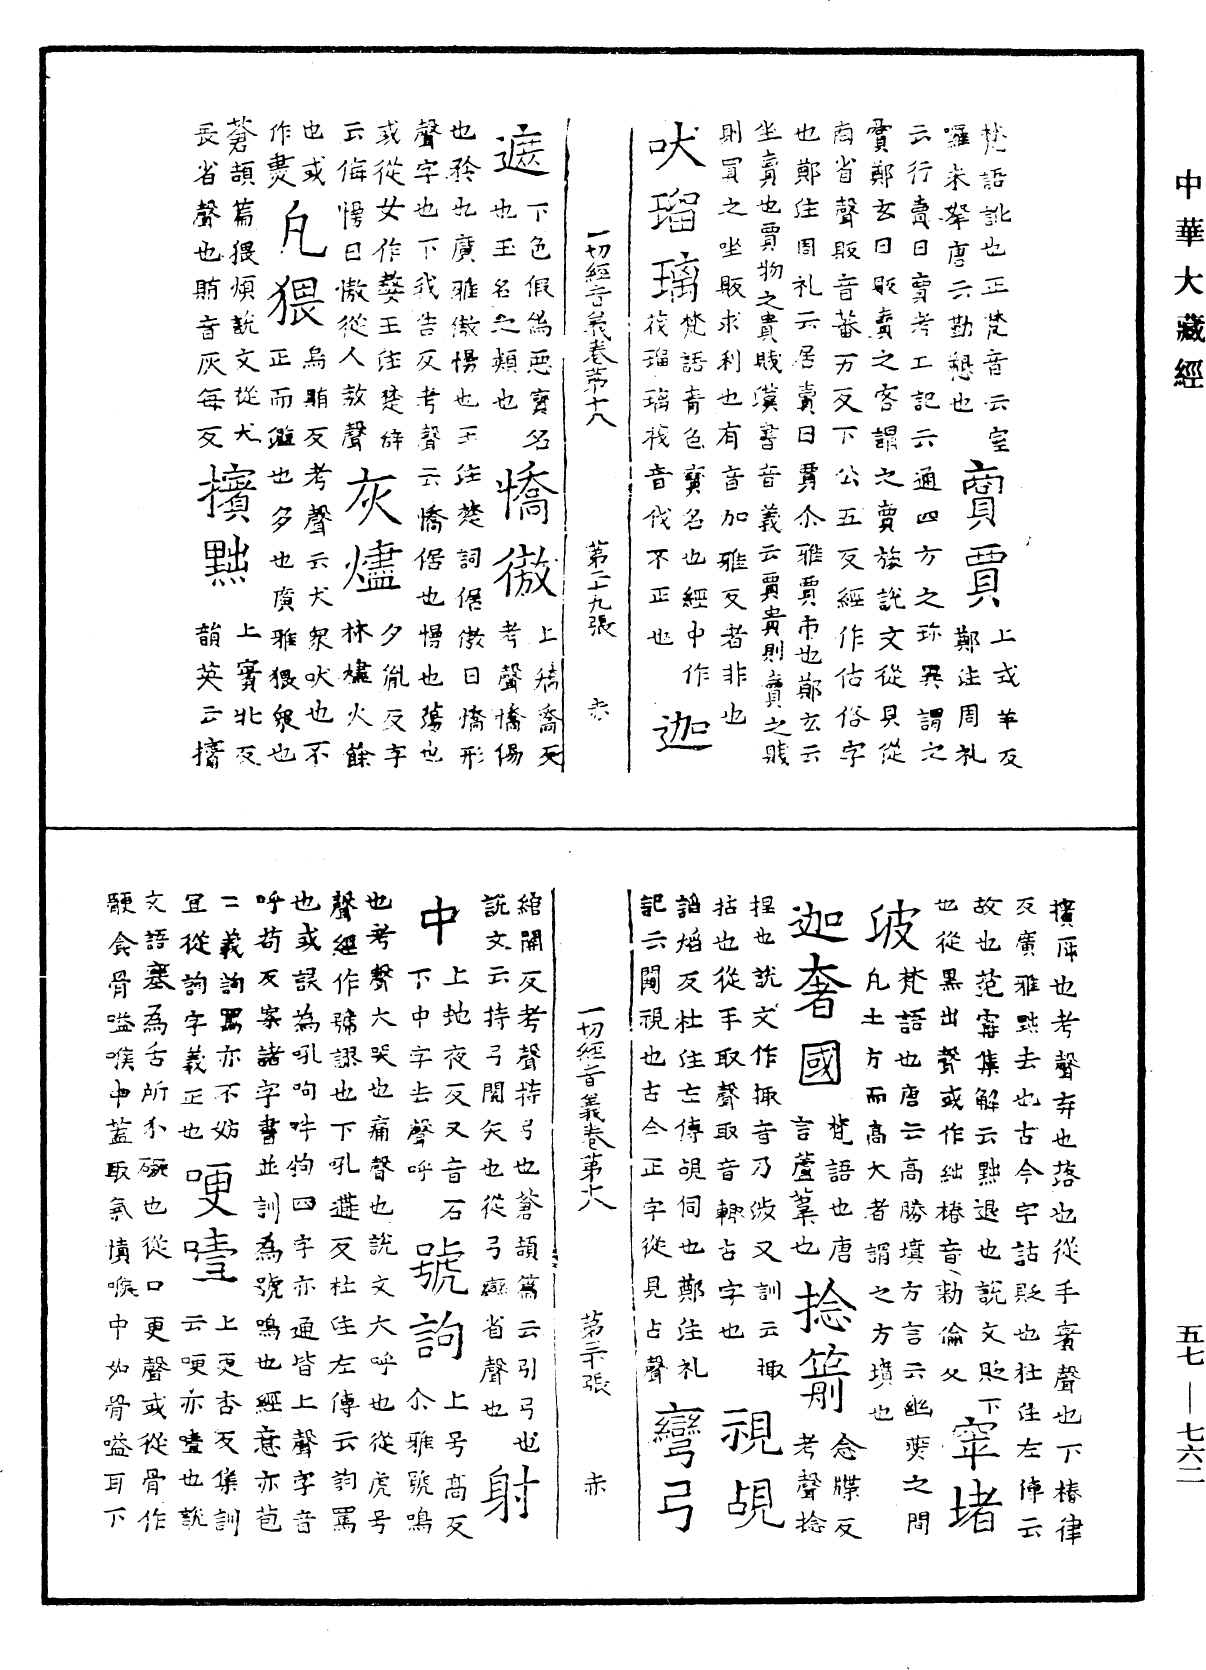 中華大藏經
梵語訛也正梵音云室
囉末拏唐云勤懇也
商賈
上式羊反鄭注周礼
云行賣曰商考工記云通四方之珎異謂之
賣鄭玄曰販賣之客謂之賣旅說文從貝從
商省聲販音蕃万反下公五反經作估俗字
也鄭注周礼云居賣曰賈尒雅賈市也鄭玄云
坐賣也賈物之貴賤漢書音義云賈貴則賣之賤
則買之坐販求利也有音加雅反者非也
吠瑠璃
梵語青色寶名也經中作
筏瑠璃筏音伐不正也
迦
一切經音義卷第十八 第二十九張 赤
遮
下色假為惡寶名
也玉名之類也
憍慠
上矯喬反
考聲憍傷
也矜也廣雅慠慢也王注楚詞倨慠曰憍形
聲字也下我告反考聲云憍倨也慢也蕩也
或從女作嫯王注楚辞
云侮慢曰慠從人敖聲
灰燼
夕胤反字
林燼火餘
也或
作㶳
凡猥
烏賄反考聲云犬衆吠也不
正而濫也多也廣雅猥衆也
蒼頡篇猥煩說文從犬
長省聲也賄音灰每反
擯黜
上賓牝反
韻英云擯
擯㡿也考聲弃也落也從手賓聲也下椿律
反廣雅黜去也古今字詁貶也杜注左傳云
故也范甯集解云黜退也說文貶下
也從黑出聲或作絀椿音勑倫反
窣堵
波
梵語也唐云高勝墳方言云幽冀之間
凡土方而高大者謂之方墳也
迦奢國
梵語也唐
言蘆葦也
捻箭
念牒反
考聲捻
捏也說文作掫音乃㳔又訓云掫
拈也從手取聲取音輒古字也
視覘
諂㷔反杜注左傳覘伺也鄭注礼
記云闚視也古今正字從見占聲
彎弓
綰關反考聲持弓也蒼頡篇云引弓也
說文云持弓関矢也從弓䜌省聲也
射
中
上虵夜反又音石
下中字去聲呼
號訽
上号高反
尒雅號鳴
也考聲大哭也痛聲也說文大呼也從虎号
聲經作㘁謬也下吼遘反杜注左傳云訽罵
也或誤為吼呴吽㸸四字亦通皆上聲字音
呼苟反案諸字書並訓為號鳴也經意亦苞
二義訽罵亦不妨
宜從訽字義正也
哽噎
上更杏反集訓
云哽亦噎也說
文語塞為舌所介礙也從口更聲或從骨作
骾食骨嗌喉中蓋取氣憤喉中如骨嗌耳下
一切經音義卷第十八 第三十張 赤
五七—七六二